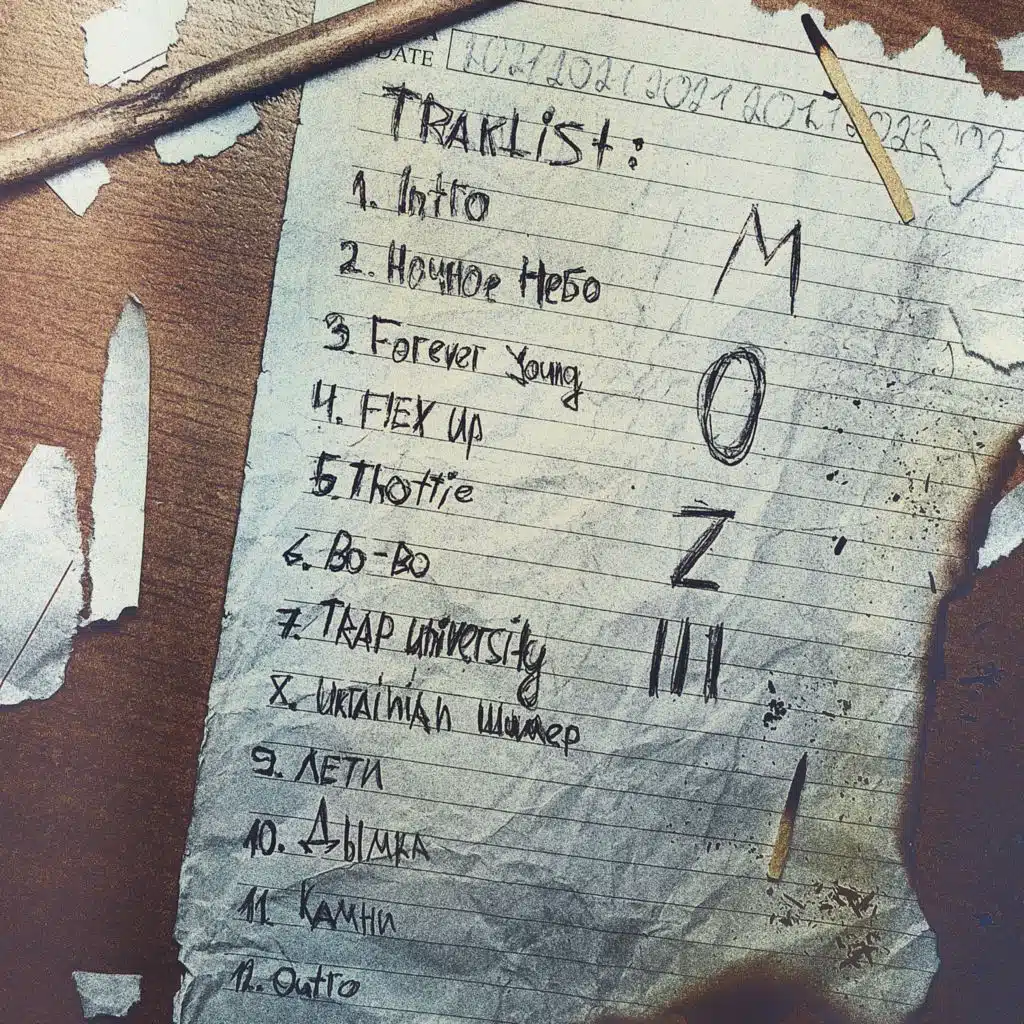 DATE 2021 2021 2021 2021 2021 202
TRAKLiSt:
1. Intro
2. Ночное Небо
3. Forever Young
4. FlEX up
5 Thottie
6. Bo-Bo
7. TRAP university
8. UKrAiNiAn Шиммер
9. ЛЕТИ
10. Дымка
11. Камни
12. Outro
M
O
Z
III